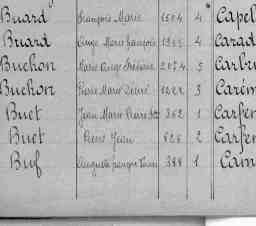 Buard François Marie 1504 4 Capel
Buard Ange Marie François 4 Carad
Buchon Marie Ange 2074 5
Buchon Pierre Marie 1222 3 Carém
Buet Jean Marie Pierre 362 1 Carfen
Buet René Jean 828 2 Carfen
Buf Auguste François 388 1 Cam